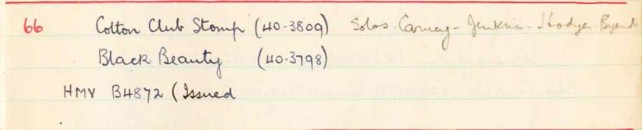 66 Cotton Club Stomp (40-3809) Solos Carney - Jenkins - Hodges -
Black Beauty (40-3798)
HMV B4872 (Issued